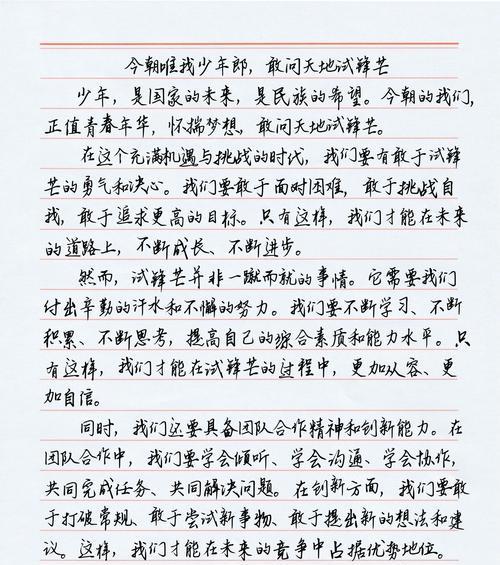 今朝唯我少年郎，敢问天地试锋芒
少年，是国家的未来，是民族的希望。今朝的我们，
正值青春年华，怀揣梦想，敢问天地试锋芒。
在这个充满机遇与挑战的时代，我们要有敢于试锋
芒的勇气和决心。我们要敢于面对困难，敢于挑战自
我，敢于追求更高的目标。只有这样，我们才能在未来
的道路上，不断成长、不断进步。
然而，试锋芒并非一蹴而就的事情。它需要我们
付出辛勤的汗水和不懈的努力。我们要不断学习、不断
积累、不断思考，提高自己的综合素质和能力水平。只
有这样，我们才能在试锋芒的过程中，更加从容、更
加自信。
同时，我们还要具备团队合作精神和创新能力。在
团队合作中，我们要学会倾听、学会沟通、学会协作，
共同完成任务、共同解决问题。在创新方面，我们要敢
于打破常规、敢于尝试新事物、敢于提出新的想法和建
议。这样，我们才能在未来的竞争中占据优势地位。